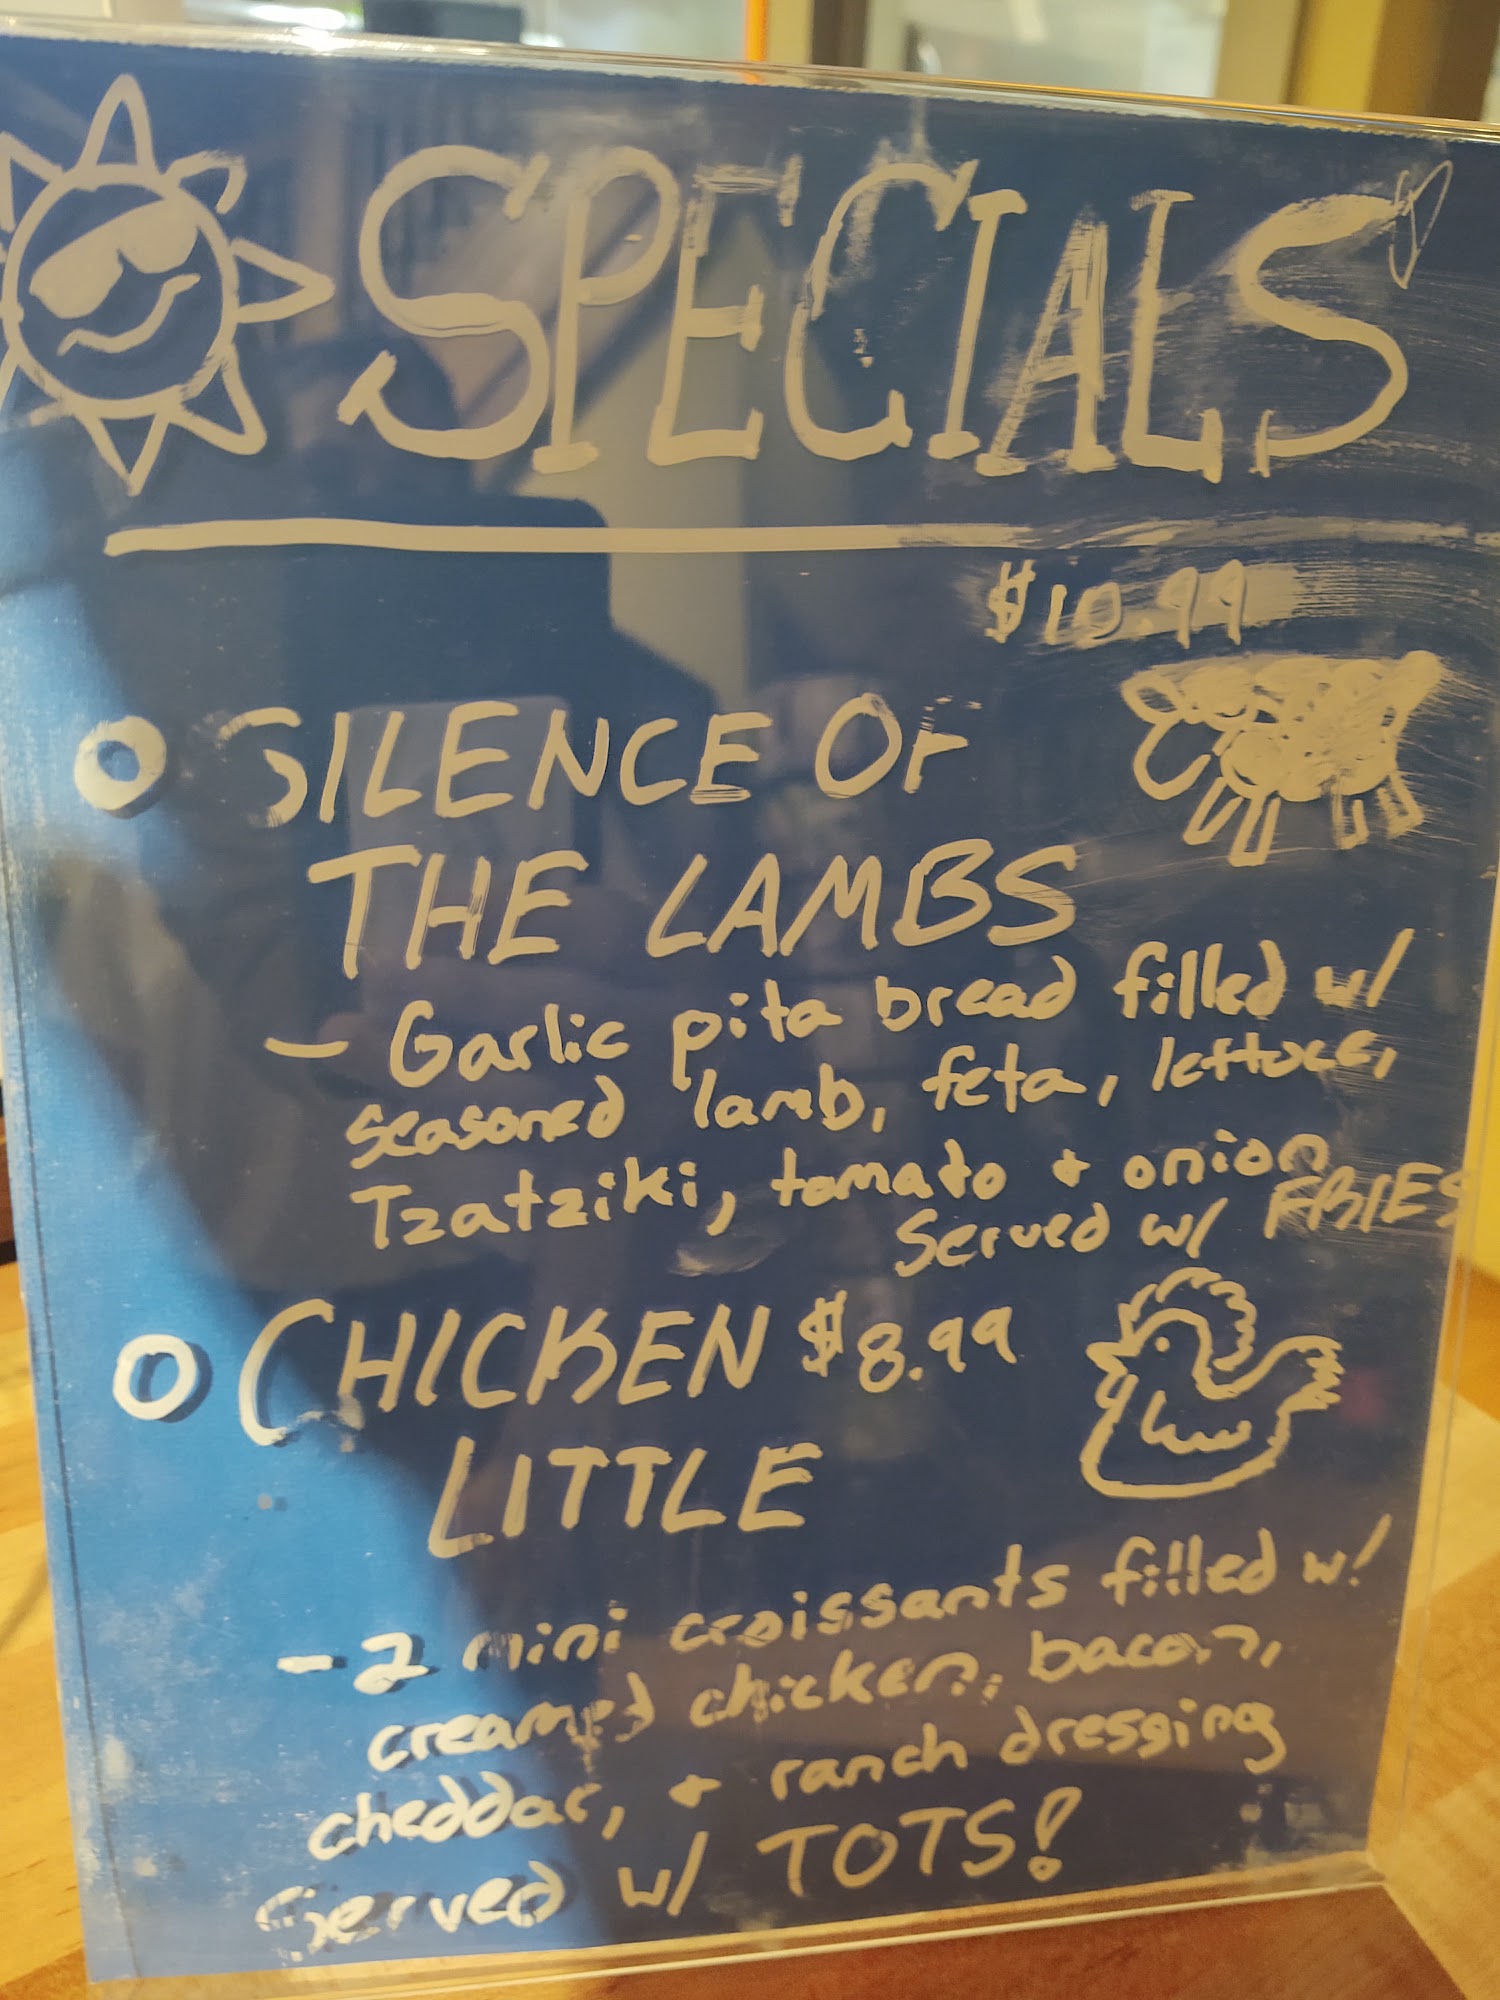 SPECIALS
$10.99
SILENCE OF
THE LAMBS
- Garlic pita bread filled w/
seasoned lamb, feta, lettuce,
Tzatziki, tomato + onion
Served w/ FRIES
CHICKEN $8.99
LITTLE
- 2 mini croissants filled w/
creamed chicken, bacon,
cheddar, + ranch dressing
Served w/ TOTS!